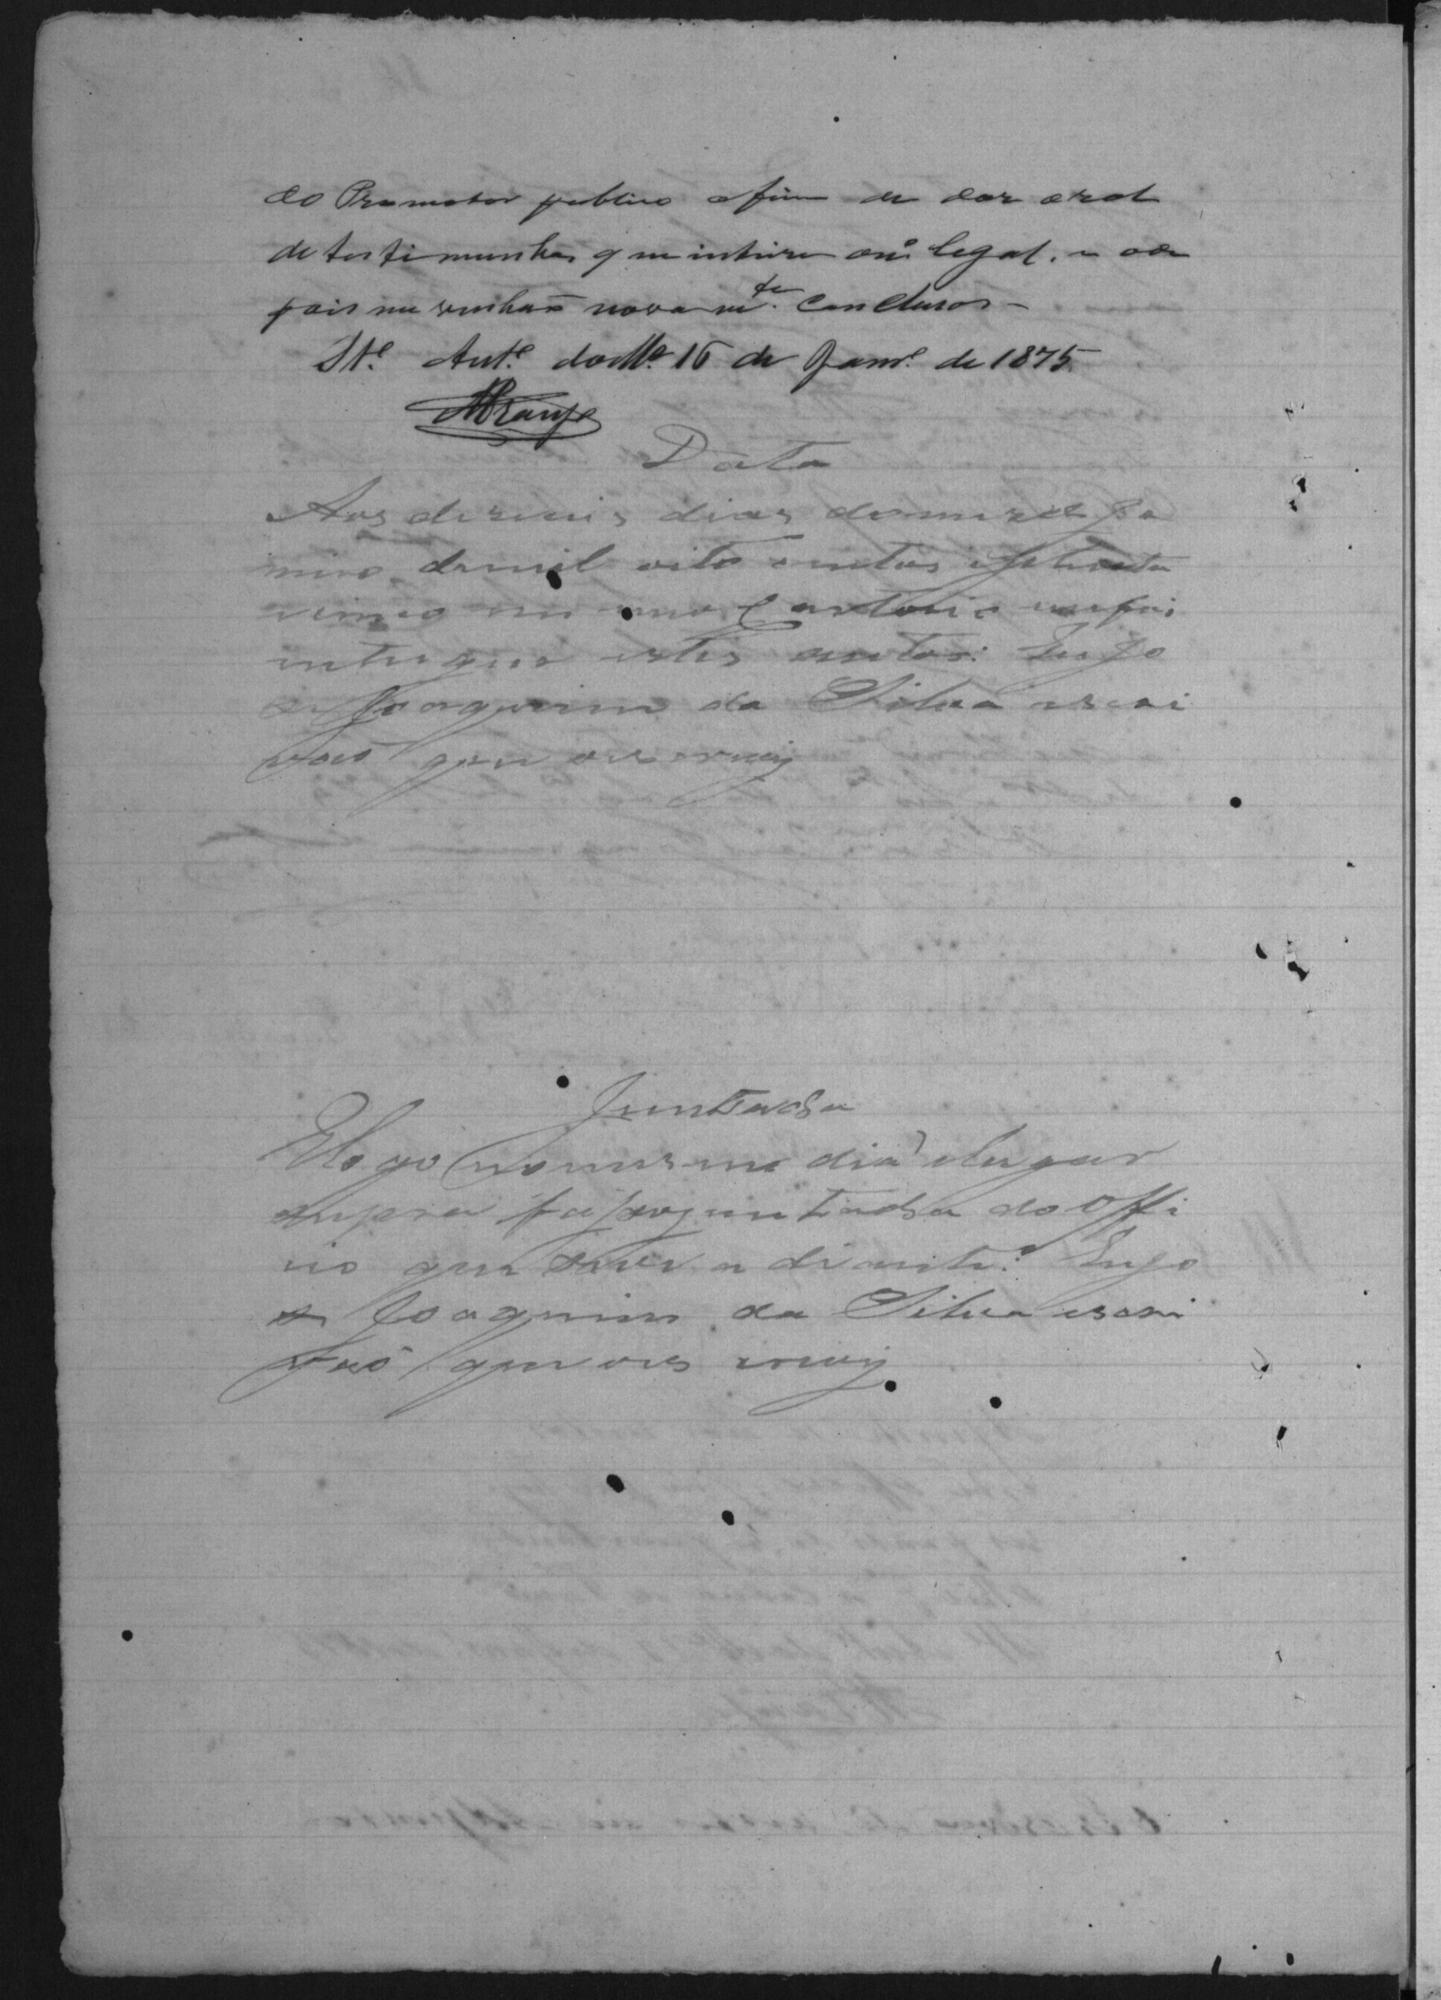 ao Promotor publico afim de dar o rol
de testimunhas que intiver em legal, e de
pois me venhão novam.te conclusos –
St.º Ant.º do M.º 16 de Janr.º de 1875
Araujo
Data
Aos deseseis dias do mez de Ja
neiro de mil oito centos e setenta
e cinco em meu Cartorio me foi
entregue estes autos: Eu Jo
se Joaquim da Silva escri
vaõ que escrevij
Juntada
E logo no mesmo dia e lugar
supra faço juntada do offi
cio que se vê a diante: Eu Jo
se Joaquim da Silva escri
vaõ que escrevij